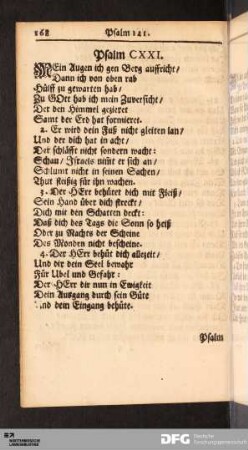 168 Psalm 121.
Psalm CXXI.
MEin Augen ich gen Berg auffricht/
Dann ich von oben rab
Hülff zu gewarten hab/
Zu GOtt hab ich mein Zuversicht/
Der den Himmel gezieret
Samt der Erd hat formieret.
2. Er wird dein Fuß nicht gleiten lan/
Und der dich hat in acht/
Der schläfft nicht sondern wacht:
Schau/ Israels nimt er sich an/
Schlumt nicht in seinen Sachen/
Thut fleißig für ihn wachen.
3. Der HErr behütet dich mit Fleiß/
Sein Hand über dich streckt/
Dich mit den Schatten deckt:
Daß dich des Tags die Sonn so heiß
Oder zu Nachts der Scheine
Des Monden nicht bescheine.
4. Der HErr behüt dich allezeit/
Und dir dein Seel bewahr
Für Ubel und Gefahr:
Der HErr dir nun in Ewigkeit
Dein Außgang durch sein Güte
Und dem Eingang behüte.
Psalm
DFG Deutsche
Forschungsgemeinschaft